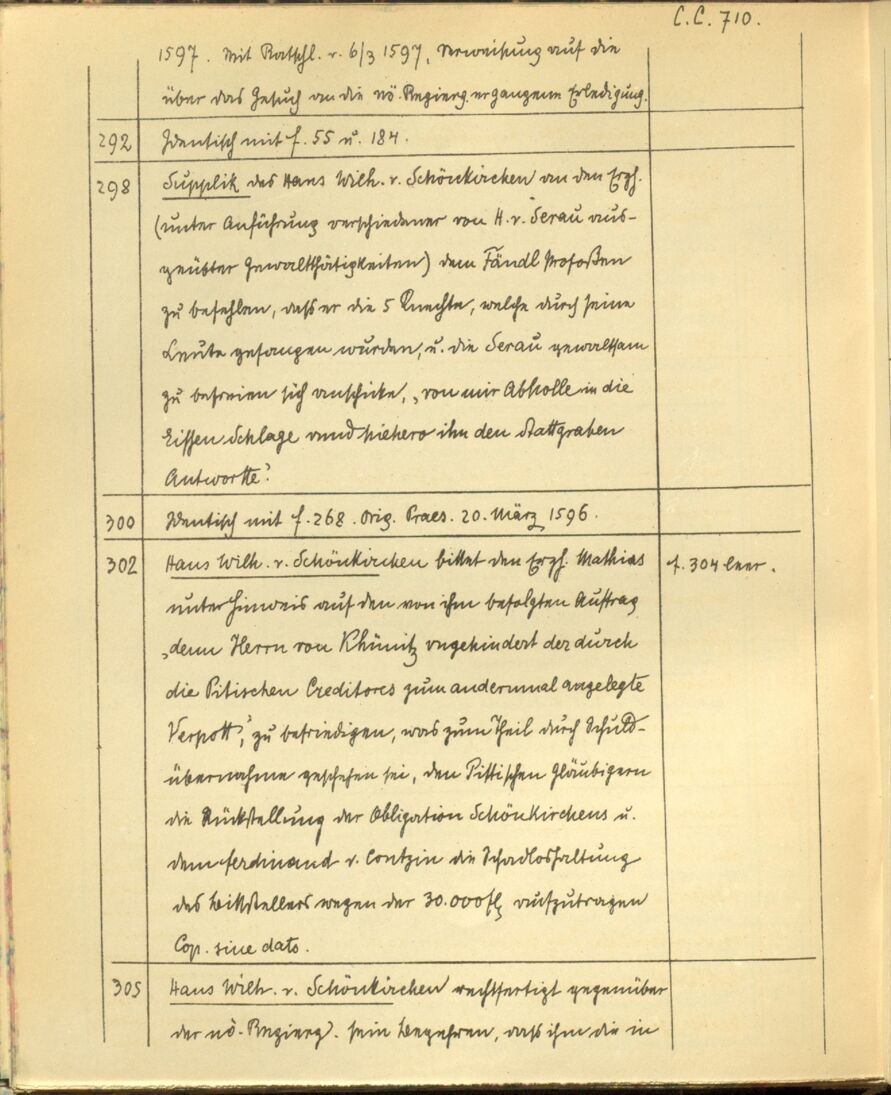 C.C. 710.
1597. Mit Ratschl. v. 6/3 1597, Verweisung auf die
über das Gesuch an die nö. Regierg. ergangene Erledigung.
292 Identisch mit f. 55 u. 184.
298 Supplik des Hans Wilh. v. Schönkirchen an den Erzh.
(unter Anführung verschiedener von H. v. Serau aus-
geübter Gewaltthätigkeiten) dem Fändl Profoßen
zu befehlen, daß er die 5 Knechte, welche durch seine
Leute gefangen wurden, u. die Serau gewaltsam
zu befreien sich anschicke, „von mir Abholle in die
Eissen Schlage vnnd hiehero ihn den Stattgraben
Antwortte".
300 Identisch mit f. 268. Orig. Praes. 20. März 1596.
302 Hans Wilh. v. Schönkirchen bittet den Erzh. Mathias f. 304 leer.
unter Hinweis auf den von ihm befolgten Auftrag
„denn Herrn von Khünitz vngehindert der durch
die Pitischen Creditores zum andermal angelegte
Verpott", zu befriedigen, was zum Theil durch Schuld-
übernahme geschehen sei, den Pittischen Gläubigern
die Rückstellung der Obligation Schönkirchens u.
dem Ferdinand v. Contzin die Schadloshaltung
des Bittstellers wegen der 30.000 fl. aufzutragen
Cop. sine dato.
305 Hans Wilh. v. Schönkirchen rechtfertigt gegenüber
der nö. Regierg. sein Begehren, daß ihm die in